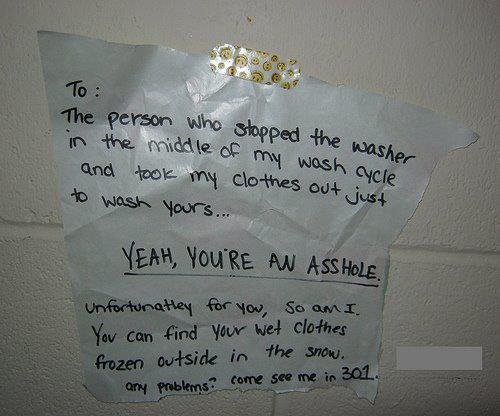 To:
The person who stopped the washer
in the middle of my wash cycle
and took my clothes out just
to wash yours...
YEAH, YOU'RE AN ASSHOLE.
unfortunatley for you, so am I.
You can find your wet clothes
frozen outside in the snow.
any problems? come see me in 301.